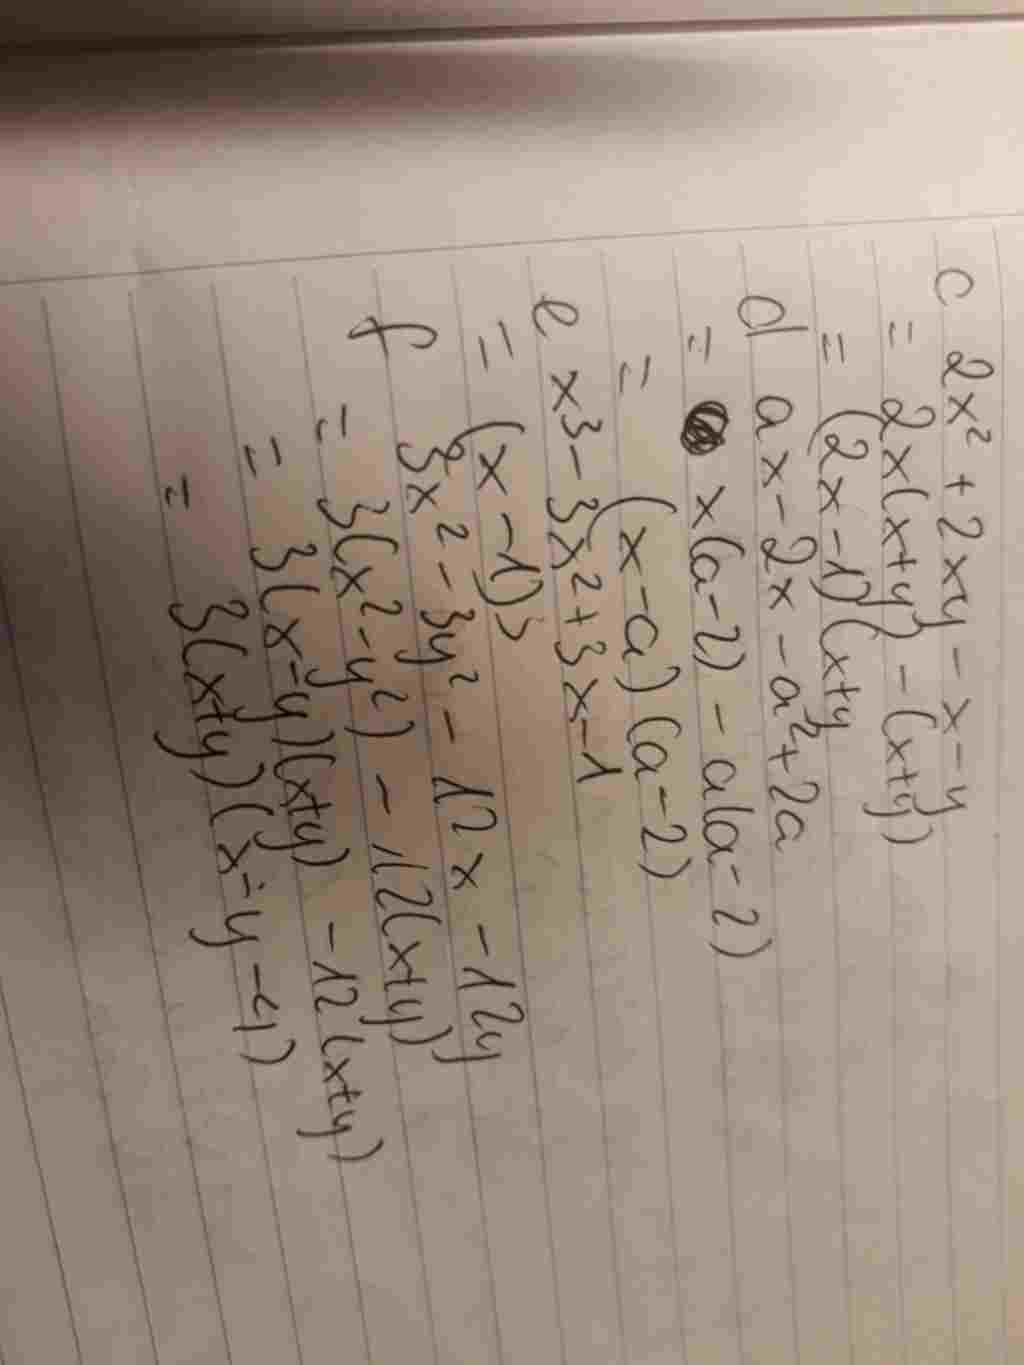 c 2x² + 2xy - x - y
= 2x(x+y) - (x+y)
= (2x-1)(x+y
d ax - 2x - a² + 2a
= x(a-2) - a(a-2)
= (x-a)(a-2)
e x3 - 3x² + 3x - 1
= (x-1)3
f 3x² - 3y² - 12x - 12y
= 3(x² - y²) - 12(x+y)
= 3(x-y)(x+y) - 12(x+y)
= 3(x+y)(x-y-4)